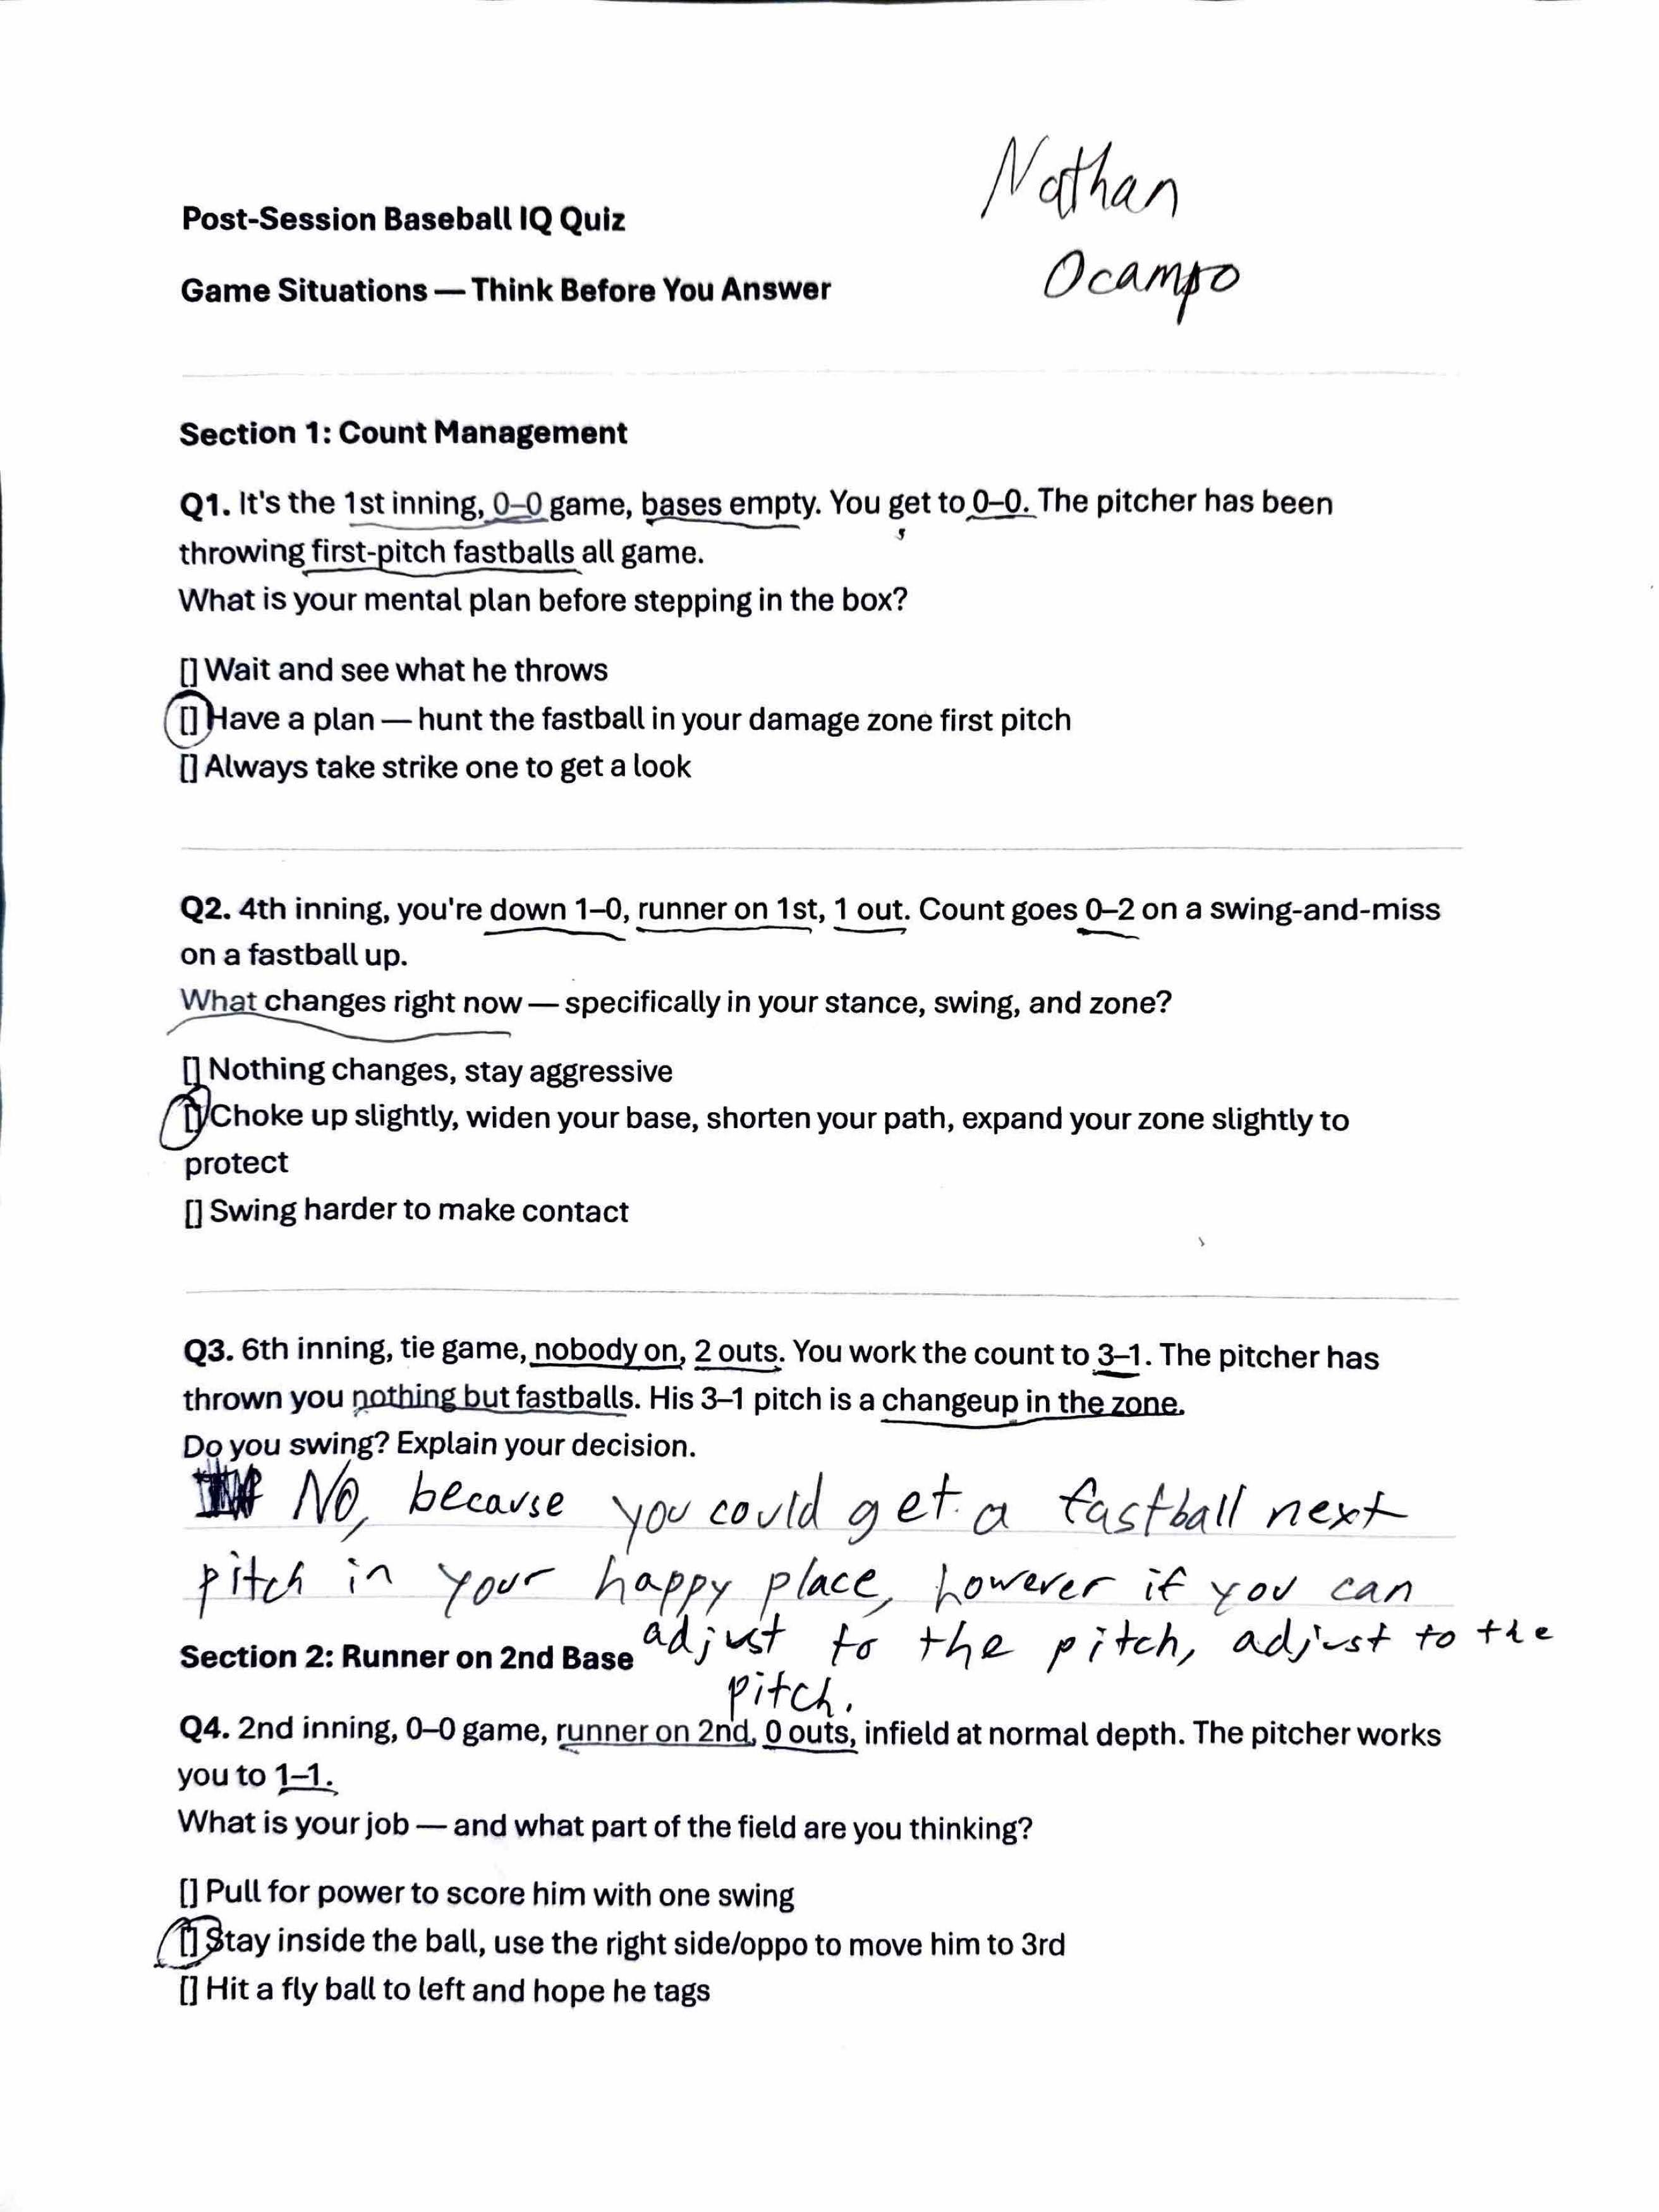 Nathan
Ocampo
Post-Session Baseball IQ Quiz
Game Situations — Think Before You Answer
Section 1: Count Management
Q1. It's the 1st inning, 0–0 game, bases empty. You get to 0–0. The pitcher has been
throwing first-pitch fastballs all game.
What is your mental plan before stepping in the box?
[] Wait and see what he throws
[] Have a plan — hunt the fastball in your damage zone first pitch
[] Always take strike one to get a look
Q2. 4th inning, you're down 1–0, runner on 1st, 1 out. Count goes 0–2 on a swing-and-miss
on a fastball up.
What changes right now — specifically in your stance, swing, and zone?
[] Nothing changes, stay aggressive
[] Choke up slightly, widen your base, shorten your path, expand your zone slightly to
protect
[] Swing harder to make contact
Q3. 6th inning, tie game, nobody on, 2 outs. You work the count to 3–1. The pitcher has
thrown you nothing but fastballs. His 3–1 pitch is a changeup in the zone.
Do you swing? Explain your decision.
No, because you could get a fastball next
pitch in your happy place, however if you can
adjust to the pitch, adjust to the
pitch.
Section 2: Runner on 2nd Base
Q4. 2nd inning, 0–0 game, runner on 2nd, 0 outs, infield at normal depth. The pitcher works
you to 1–1.
What is your job — and what part of the field are you thinking?
[] Pull for power to score him with one swing
[] Stay inside the ball, use the right side/oppo to move him to 3rd
[] Hit a fly ball to left and hope he tags